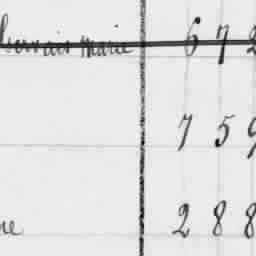 Gervais Marie 6 7 2
7 5 9
ne 2 8 8